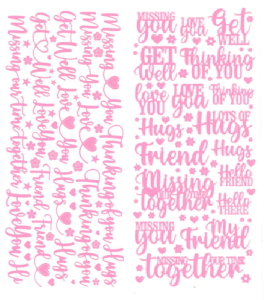 Missing you Thinking of you
Missing you Love Thinking of you
Get Well Love you Hugs Hugs
Get Well Friend Friend
Missing our time together Love you
MISSING you
LOVE you
Get WELL
GET Well
Thinking OF YOU
love YOU
LOVE YOU
Thinking OF YOU
Hugs
LOTS OF Hugs
Friend
Hugs
Missing together
Hello FRIEND
Hello THERE
MISSING you
My Friend
MISSING OUR TIME
together